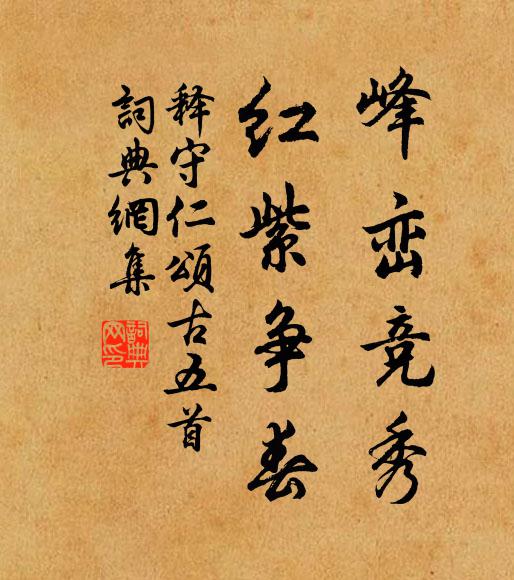 峰峦竞秀
红紫争春
释守仁頌古五首
詞典網集
詞典网印